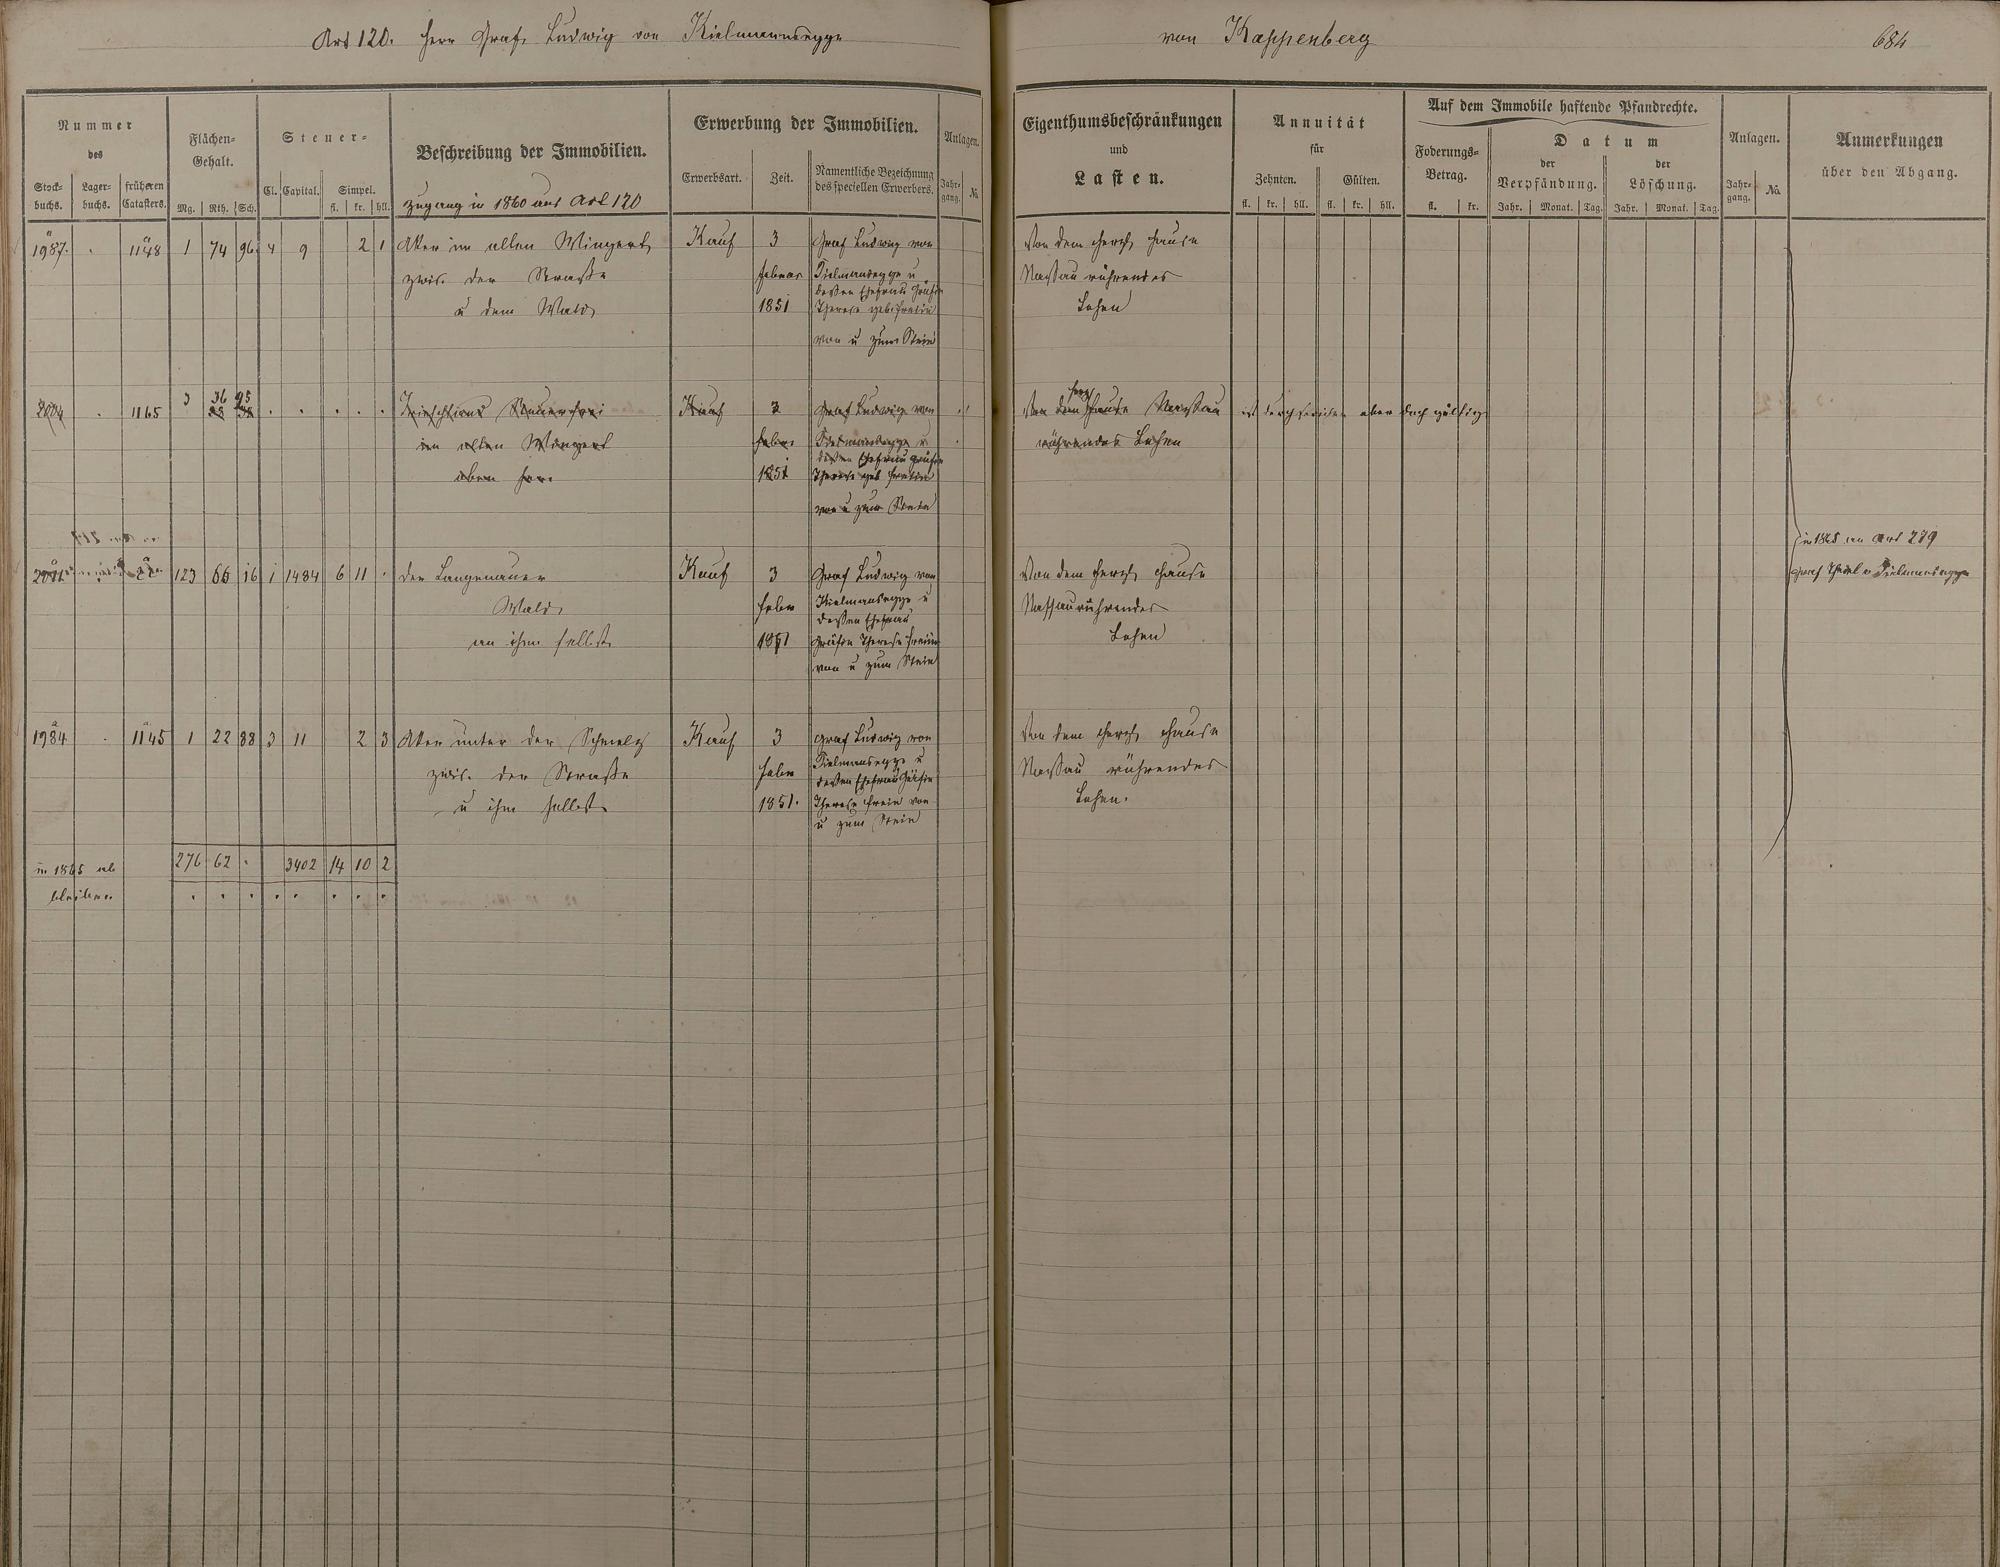 Art 120. Herr Graf Ludwig von Kielmannsegge
von Kappenberg
684
Nummer
des
Stock-
buchs.
Lager-
buchs.
früheren
Catasters.
Flächen-
Gehalt.
Mg. Rth. Sch.
Steuer-
Cl. Capital. Simpel.
fl. kr. hll.
Beschreibung der Immobilien.
Zugang in 1860 aus Art 120
Erwerbung der Immobilien.
Erwerbsart.
Zeit.
Namentliche Bezeichnung
des speciellen Erwerbers.
Anlagen.
Jahr-
gang.
No.
Eigenthumsbeschränkungen
und
Lasten.
Annuität
für
Zehnten. Gülten.
fl. kr. hll. fl. kr. hll.
Auf dem Immobile haftende Pfandrechte.
Foderungs-
Betrag.
fl. kr.
Datum
der
Verpfändung.
der
Löschung.
Jahr. Monat. Tag. Jahr. Monat. Tag.
Anlagen.
Jahr-
gang.
No.
Anmerkungen
über den Abgang.
1987. 1148 1 74 96 4 9 2 1
Aker im alten Wingert
zwis. der Straße
u dem Wald
Kauf
3
Febuar
1851
Graf Ludwig von
Kielmansegge u
deßen Ehefrau Gräfin
Therese geb. Freiin
von u zum Stein
Von dem Herzl Hause
Naßau rührendes
Lehen
2004 1165 3 36 95
Steuerfrei
im alten Wingert
oben her
Kauf
3
Febr.
1851
Graf Ludwig von
Kielmansegge u
deßen Ehefrau Gräfin
Therese geb Freiin
von u zum Stein
Von dem Herzl Hause Naßau
rührendes Lehen
ist durchstrichen aber doch gültig
123 66 16 1 1484 6 11
Der Langenauer
Wald
an ihm selbst
Kauf
3
Febr
1851
Graf Ludwig von
Kielmansegge u
deßen Ehefrau
Gräfin Therese Freiin
von u zum Stein
Von dem Herzl Hause
Nassau rührendes
Lehen
in 1865 an Art 279
1984 1145 1 22 88 3 11 2 3
Aker unter der Schmelz
zwis. der Straße
u ihm selbst
Kauf
3
Febr
1851.
Graf Ludwig von
Kielmansegge u
deßen Ehefrau Gräfin
Therese Freiin von
u zum Stein
Von dem Herzl Hause
Naßau rührendes
Lehen.
276 62 3402 14 10 2
in 1865 ab
bleiben